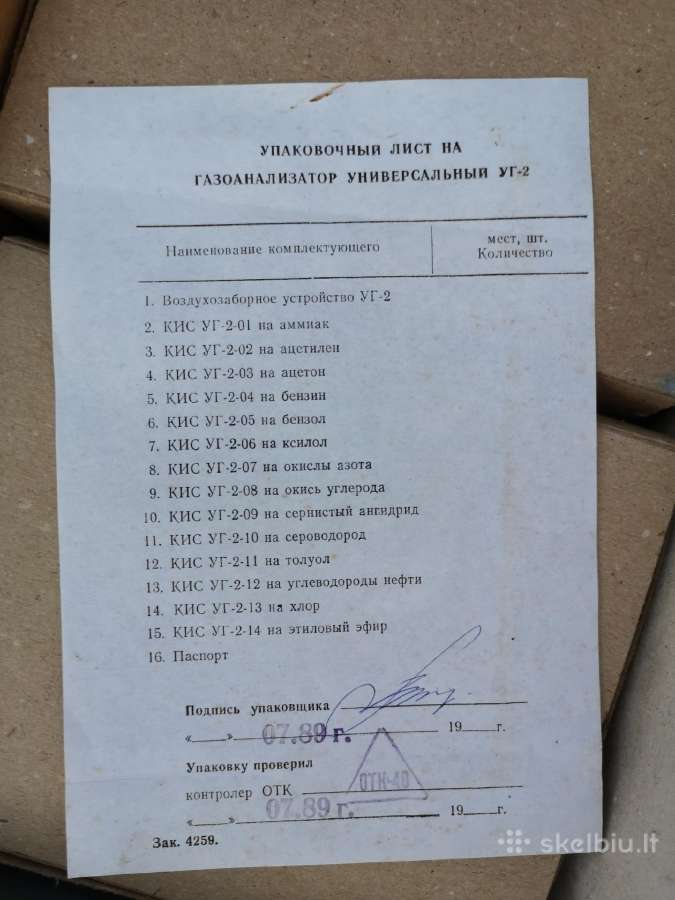 УПАКОВОЧНЫЙ ЛИСТ НА
ГАЗОАНАЛИЗАТОР УНИВЕРСАЛЬНЫЙ УГ-2
Наименование комплектующего
мест, шт.
Количество
1. Воздухозаборное устройство УГ-2
2. КИС УГ-2-01 на аммиак
3. КИС УГ-2-02 на ацетилен
4. КИС УГ-2-03 на ацетон
5. КИС УГ-2-04 на бензин
6. КИС УГ-2-05 на бензол
7. КИС УГ-2-06 на ксилол
8. КИС УГ-2-07 на окислы азота
9. КИС УГ-2-08 на окись углерода
10. КИС УГ-2-09 на сернистый ангидрид
11. КИС УГ-2-10 на сероводород
12. КИС УГ-2-11 на толуол
13. КИС УГ-2-12 на углеводороды нефти
14. КИС УГ-2-13 на хлор
15. КИС УГ-2-14 на этиловый эфир
16. Паспорт
Подпись упаковщика
«____» 07.89 г. 19____г.
Упаковку проверил
ОТК-40
контролер ОТК
«____» 07.89 г. 19____г.
Зак. 4259.
skelbiu.lt